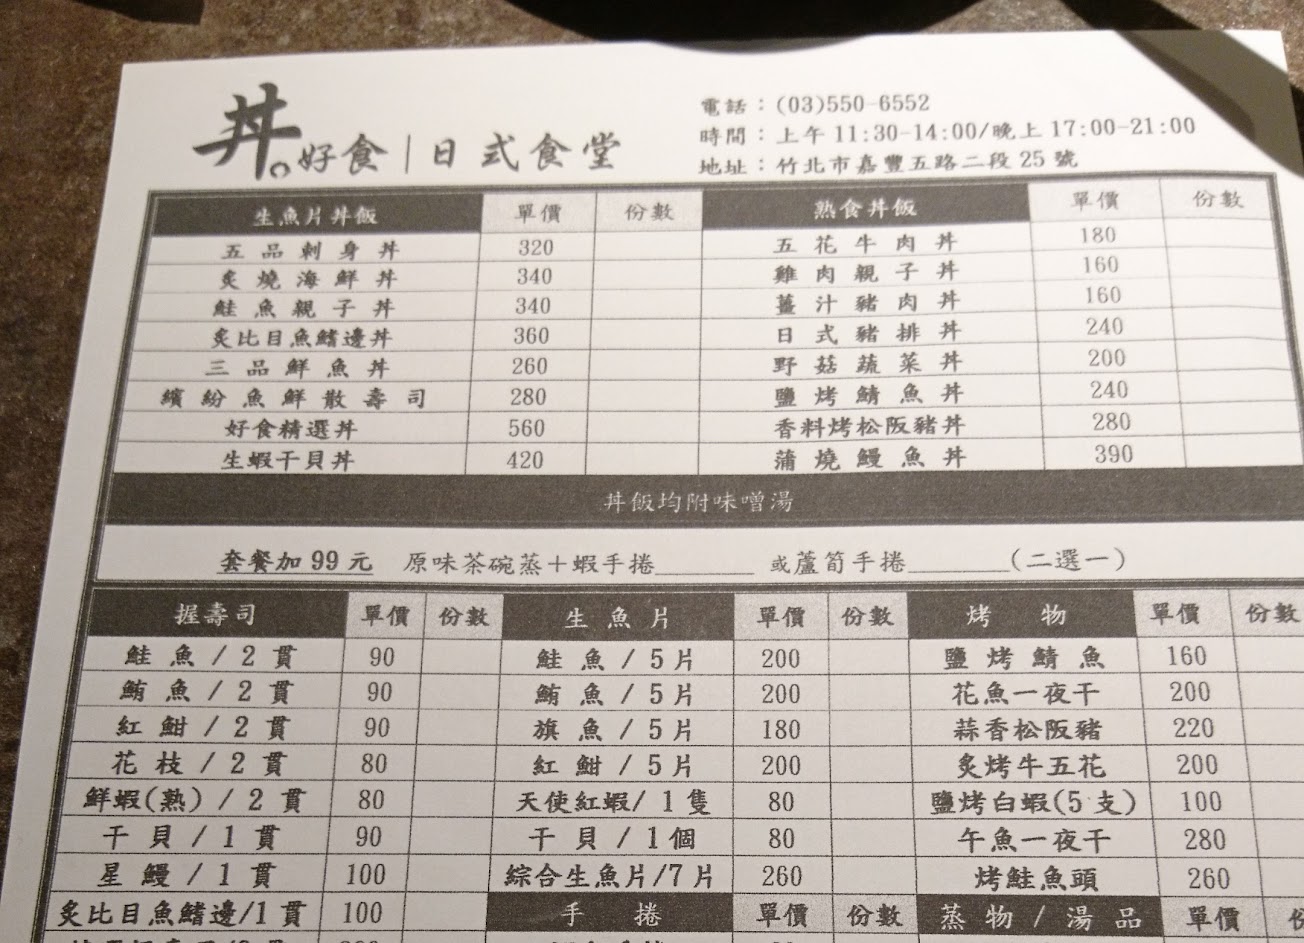 丼。好食|日式食堂
電話：(03)550-6552
時間：上午 11:30-14:00/晚上 17:00-21:00
地址：竹北市嘉豐五路二段 25 號
生魚片丼飯 單價 份數 熟食丼飯 單價 份數
五品刺身丼 320 五花牛肉丼 180
炙燒海鮮丼 340 雞肉親子丼 160
鮭魚親子丼 340 薑汁豬肉丼 160
炙比目魚鰭邊丼 360 日式豬排丼 240
三品鮮魚丼 260 野菇蔬菜丼 200
繽紛魚鮮散壽司 280 鹽烤鯖魚丼 240
好食精選丼 560 香料烤松阪豬丼 280
生蝦干貝丼 420 蒲燒鰻魚丼 390
丼飯均附味噌湯
套餐加 99 元 原味茶碗蒸＋蝦手捲_______ 或蘆筍手捲_______(二選一)
握壽司 單價 份數 生魚片 單價 份數 烤物 單價 份數
鮭魚/2貫 90 鮭魚/5片 200 鹽烤鯖魚 160
鮪魚/2貫 90 鮪魚/5片 200 花魚一夜干 200
紅魽/2貫 90 旗魚/5片 180 蒜香松阪豬 220
花枝/2貫 80 紅魽/5片 200 炙烤牛五花 200
鮮蝦(熟)/2貫 80 天使紅蝦/1隻 80 鹽烤白蝦(5支) 100
干貝/1貫 90 干貝/1個 80 午魚一夜干 280
星鰻/1貫 100 綜合生魚片/7片 260 烤鮭魚頭 260
炙比目魚鰭邊/1貫 100 手捲 單價 份數 蒸物/湯品 單價 份